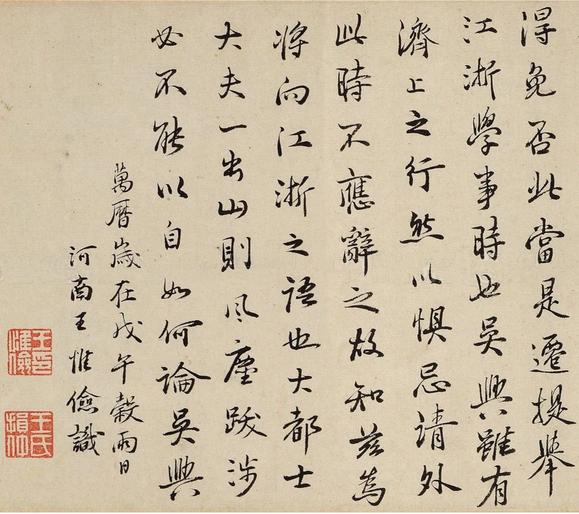 得免否此當是遷提舉
江浙學事時也吳興雖有
濟上之行然以懼忌請外
此時不應辭之故知茲為
將向江浙之語也大都士
大夫一出山則風塵跋涉
必不能以自如何論吳興
萬曆歲在戊午穀雨日
河南王惟儉識
王印惟儉
王氏損仲